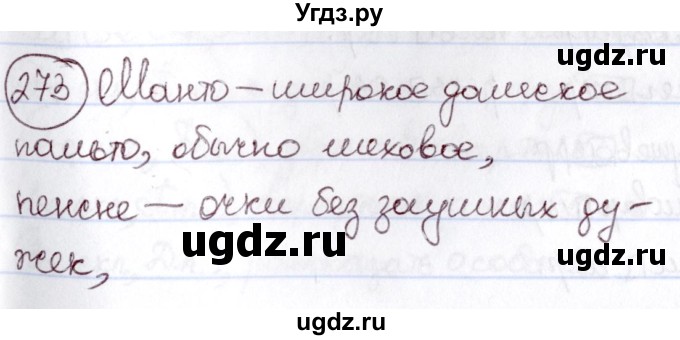 Угдз.ру
273 Манто – широкое дамское
пальто, обычно меховое,
пенсне – очки без заушных ду-
жек,
ugdz.ru
ugdz.ru
ugdz.ru
ugdz.ru
ugdz.ru